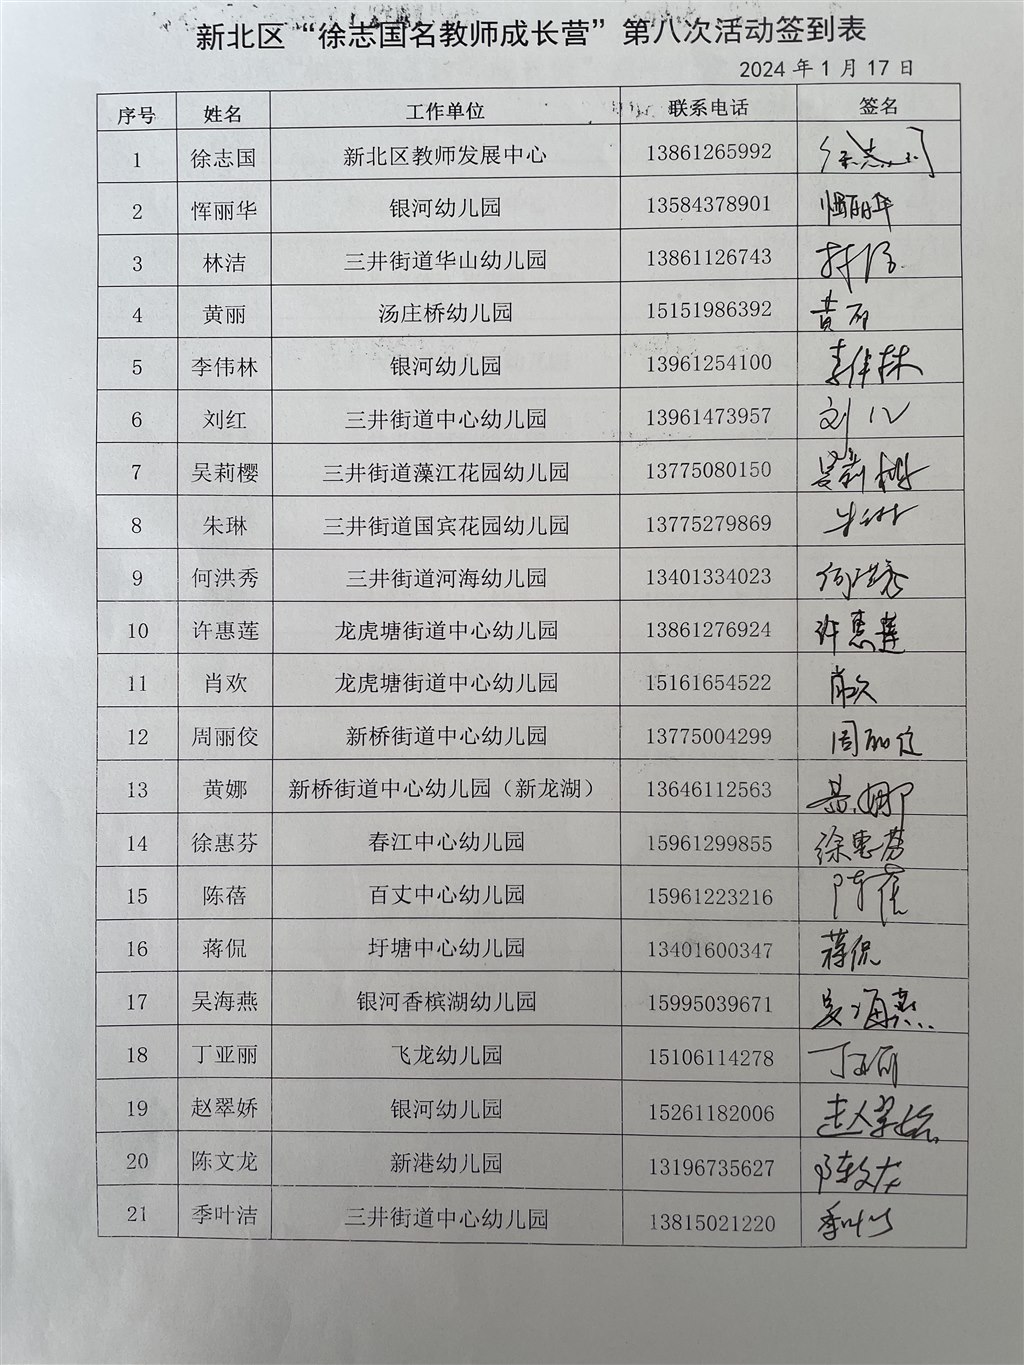 新北区“徐志国名教师成长营”第八次活动签到表
2024年1月17日
序号 姓名 工作单位 联系电话 签名
1 徐志国 新北区教师发展中心 13861265992 徐志国
2 恽丽华 银河幼儿园 13584378901 恽丽华
3 林洁 三井街道华山幼儿园 13861126743 林洁
4 黄丽 汤庄桥幼儿园 15151986392 黄丽
5 李伟林 银河幼儿园 13961254100 李伟林
6 刘红 三井街道中心幼儿园 13961473957 刘红
7 吴莉樱 三井街道藻江花园幼儿园 13775080150 吴莉樱
8 朱琳 三井街道国宾花园幼儿园 13775279869 朱琳
9 何洪秀 三井街道河海幼儿园 13401334023 何洪秀
10 许惠莲 龙虎塘街道中心幼儿园 13861276924 许惠莲
11 肖欢 龙虎塘街道中心幼儿园 15161654522 肖欢
12 周丽佼 新桥街道中心幼儿园 13775004299 周丽佼
13 黄娜 新桥街道中心幼儿园（新龙湖） 13646112563 黄娜
14 徐惠芬 春江中心幼儿园 15961299855 徐惠芬
15 陈蓓 百丈中心幼儿园 15961223216 陈蓓
16 蒋侃 圩塘中心幼儿园 13401600347 蒋侃
17 吴海燕 银河香槟湖幼儿园 15995039671 吴海燕
18 丁亚丽 飞龙幼儿园 15106114278 丁亚丽
19 赵翠娇 银河幼儿园 15261182006 赵翠娇
20 陈文龙 新港幼儿园 13196735627 陈文龙
21 季叶洁 三井街道中心幼儿园 13815021220 季叶洁